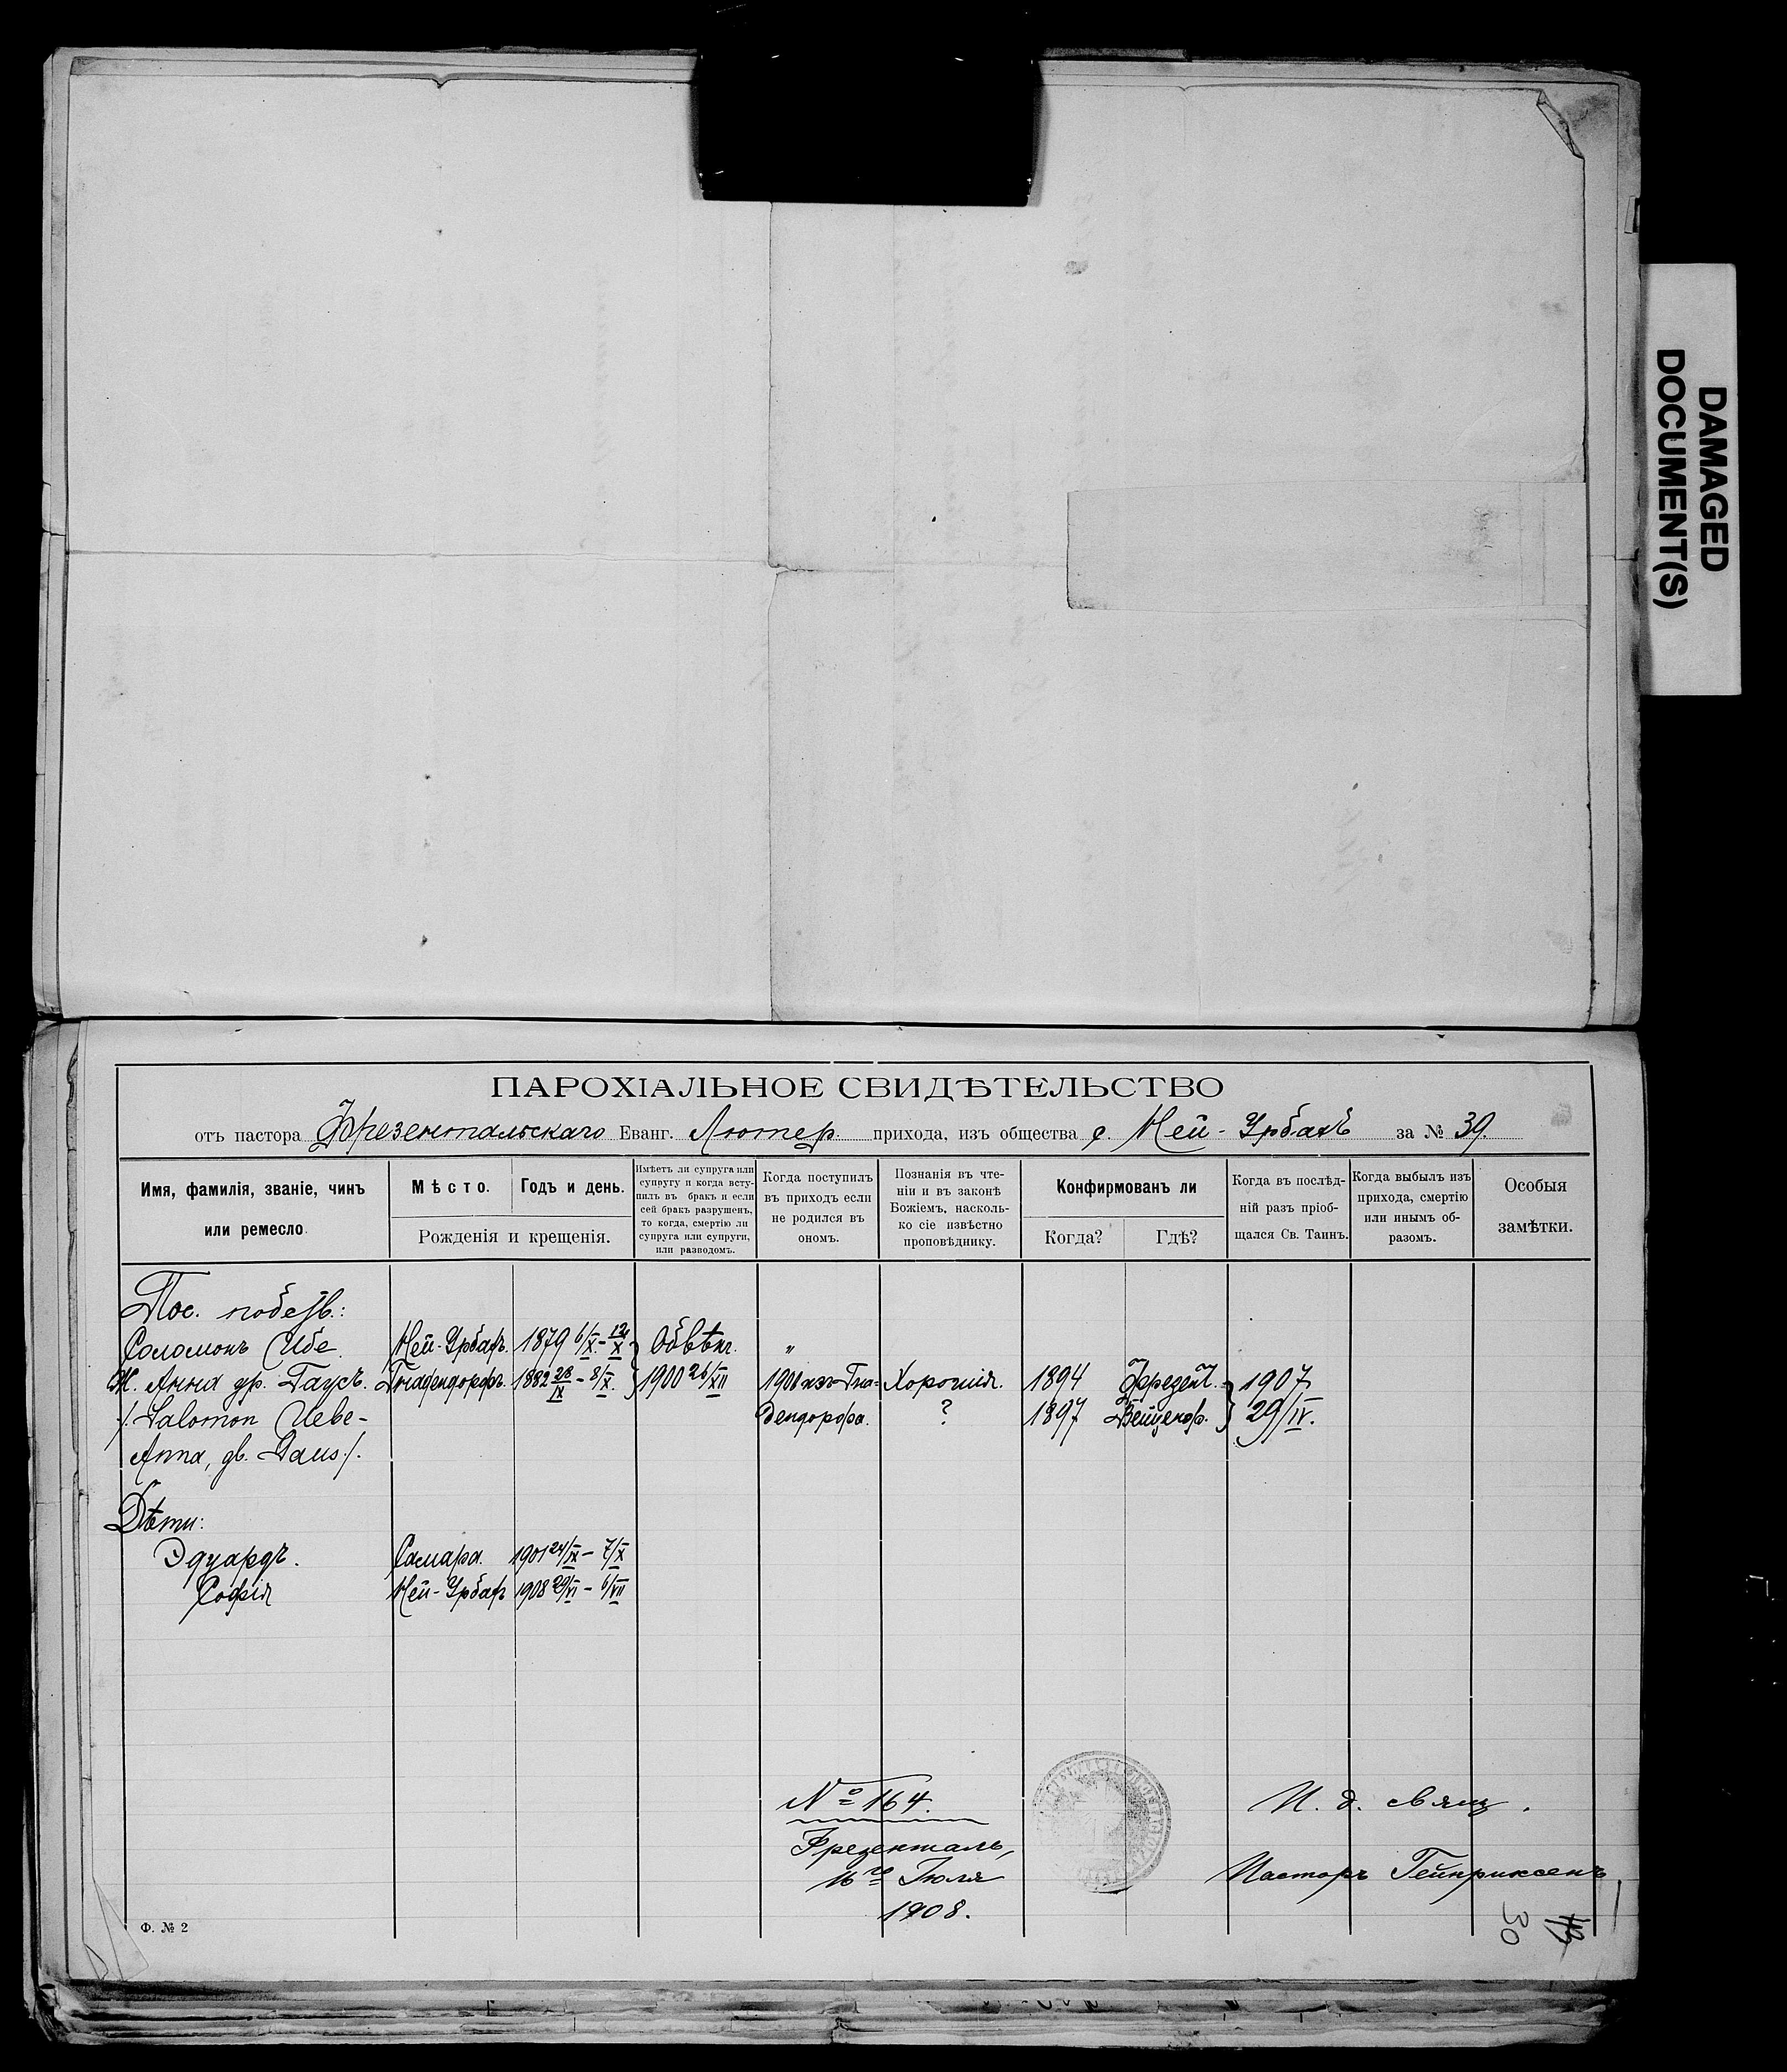 DAMAGED
DOCUMENT(S)
ПАРОХІАЛЬНОЕ СВИДѢТЕЛЬСТВО
отъ пастора Фрезентальскаго Еванг. Лютер. прихода, изъ общества с. Ней-Урбахъ за № 39.
Имя, фамилія, званіе, чинъ
или ремесло.
Мѣсто.
Годъ и день.
Рожденія и крещенія.
Имѣетъ ли супруга или
супругу и когда всту-
пилъ въ бракъ и если
сей бракъ разрушенъ,
то когда, смертію ли
супруга или супруги,
или разводомъ.
Когда поступилъ
въ приходъ если
не родился въ
ономъ.
Познанія въ чте-
ніи и въ законѣ
Божіемъ, насколь-
ко сіе извѣстно
проповѣднику.
Конфирмованъ ли
Когда?
Гдѣ?
Когда въ послѣд-
ній разъ пріоб-
щался Св. Таинъ.
Когда выбылъ изъ
прихода, смертію
или инымъ об-
разомъ.
Особыя
замѣтки.
Пос.
Соломонъ Ибе. Ней-Урбахъ. 1879 6/X - 12/X Обвѣнч. "
Ж. Анна ур. Гаусъ. Гнаденфоръ. 1882 28/IX - 8/X. 1900 26/XII 1901 изъ Гна- Хорошія. 1894 Фрезент. 1907
/. Salomon Uebe - дендорфа. ? 1897 Вейценф. 29/IV.
Anna, Haus ./.
Дѣти:
Эдуардъ. Самара. 1901 24/IX - 7/X
Софія Ней-Урбахъ 1908 29/VI - 6/VII
№ 164.
Фрезенталь,
16го Іюля
1908.
И. д. свящ.
Пасторъ Гейнриксенъ
Ф. № 2
30